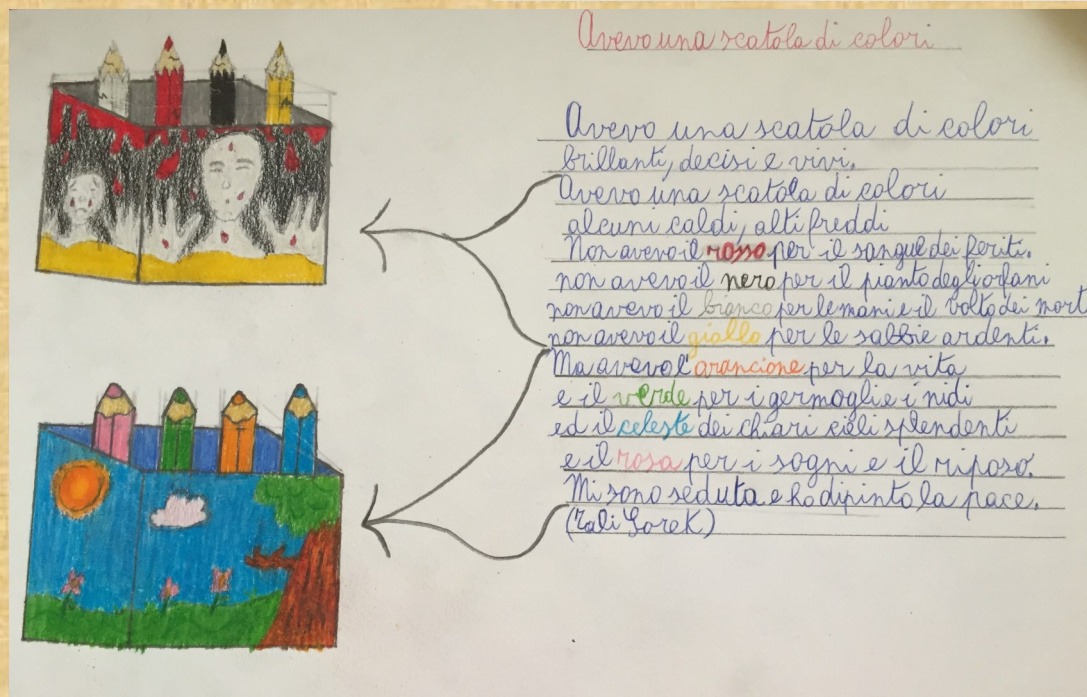 Avevo una scatola di colori
Avevo una scatola di colori
brillanti, decisi e vivi.
Avevo una scatola di colori
alcuni caldi, alti freddi
Non avevo il rosso per il sangue dei feriti.
non avevo il nero per il pianto degli orfani
non avevo il bianco per le mani e il volto dei mort
non avevo il giallo per le sabbie ardenti.
Ma avevo l'arancione per la vita
e il verde per i germogli e i nidi
ed il celeste dei chiari cieli splendenti
e il rosa per i sogni e il riposo.
Mi sono seduta e ho dipinto la pace.
(Tali Sorek)